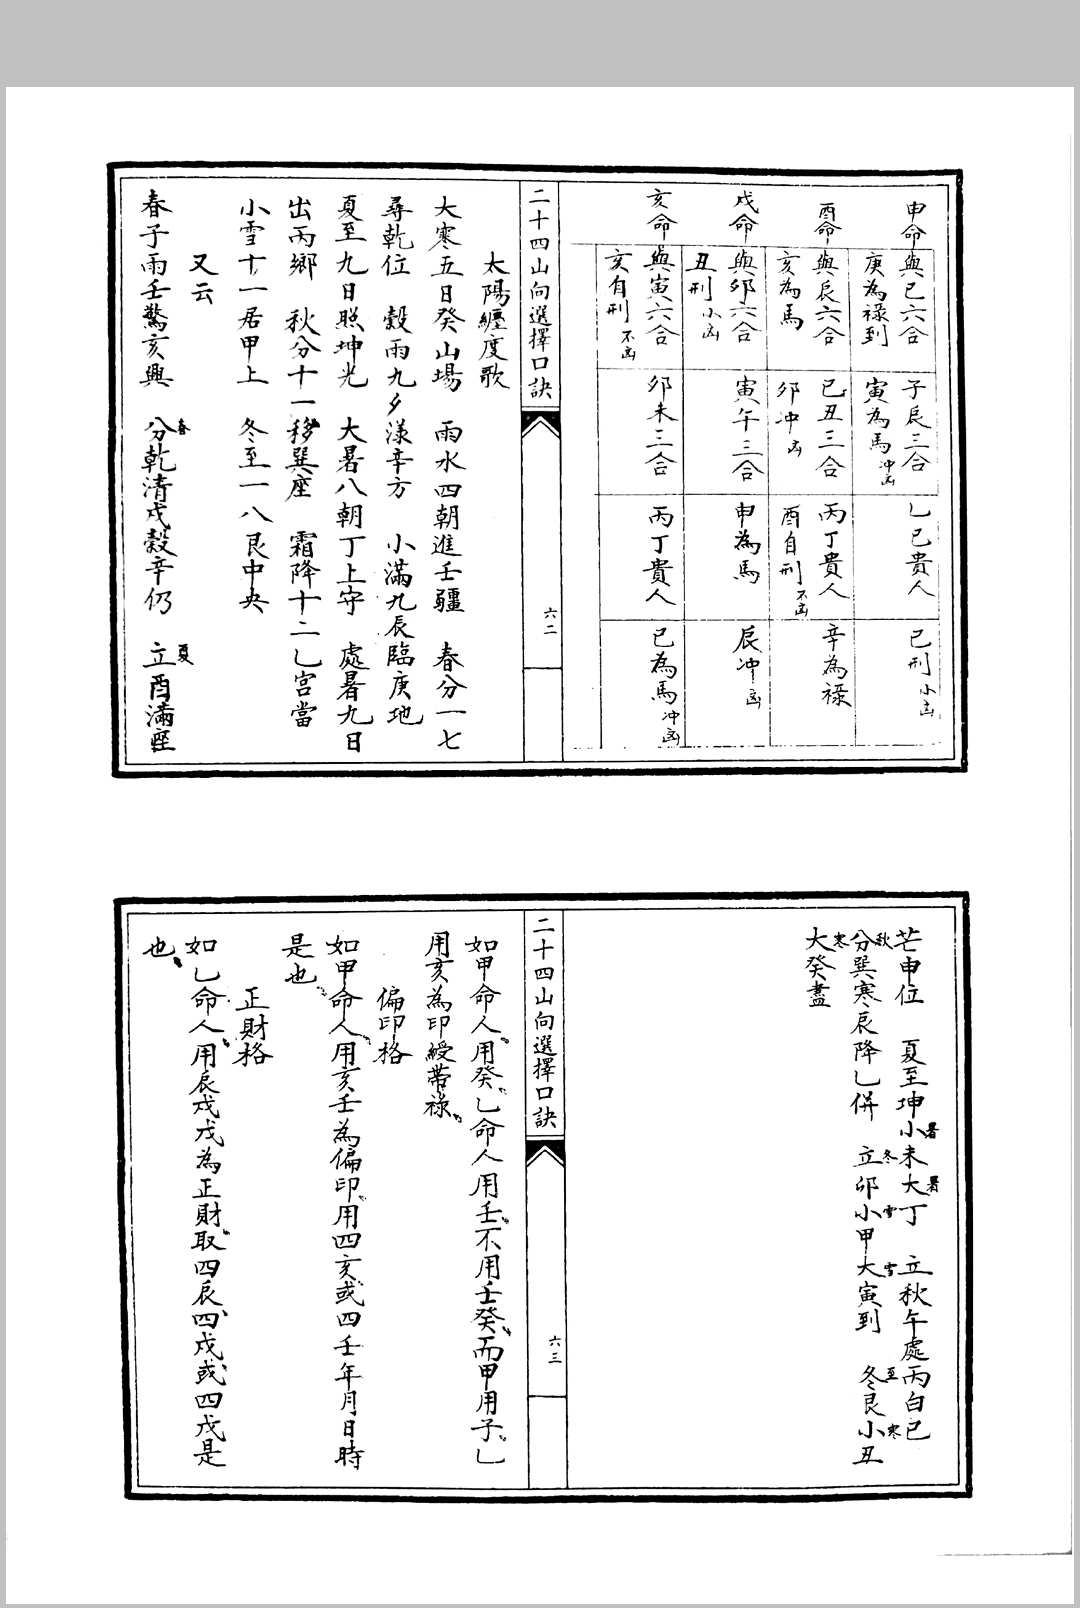 申命 與巳六合 子辰三合 乙巳貴人 巳刑小凶
庚為祿到 寅為馬冲凶
酉命 與辰六合 巳丑三合 丙丁貴人 辛為祿
亥為馬 卯冲凶 酉自刑不凶
戌命 與卯六合 寅午三合 申為馬 辰冲凶
丑刑小凶
亥命 與寅六合 卯未三合 丙丁貴人 巳為馬冲凶
亥自刑不凶
二十四山向選擇口訣
六二
太陽纏度歌
大寒五日癸山場 雨水四朝進壬疆 春分一七
尋乾位 穀雨九夕漾辛方 小滿九辰臨庚地
夏至九日照坤光 大暑八朝丁上守 處暑九日
出丙鄉 秋分十一移巽座 霜降十二乙宮當
小雪十一居甲上 冬至一八艮中央
又云
春子雨壬驚亥興 春分乾清戌穀辛仍 立夏酉滿庚
芒申位 夏至坤小暑未大暑丁 立秋午處丙白巳
秋分巽寒辰降乙併 立冬卯小雪甲大雪寅到 冬至艮小寒丑
大寒癸盡
二十四山向選擇口訣
六三
如甲命人用癸乙命人用壬不用壬癸而甲用子乙
用亥為印綬帶祿
偏印格
如甲命人用亥壬為偏印用四亥或四壬年月日時
是也
正財格
如乙命人用辰戌戊為正財取四辰四戌或四戊是
也